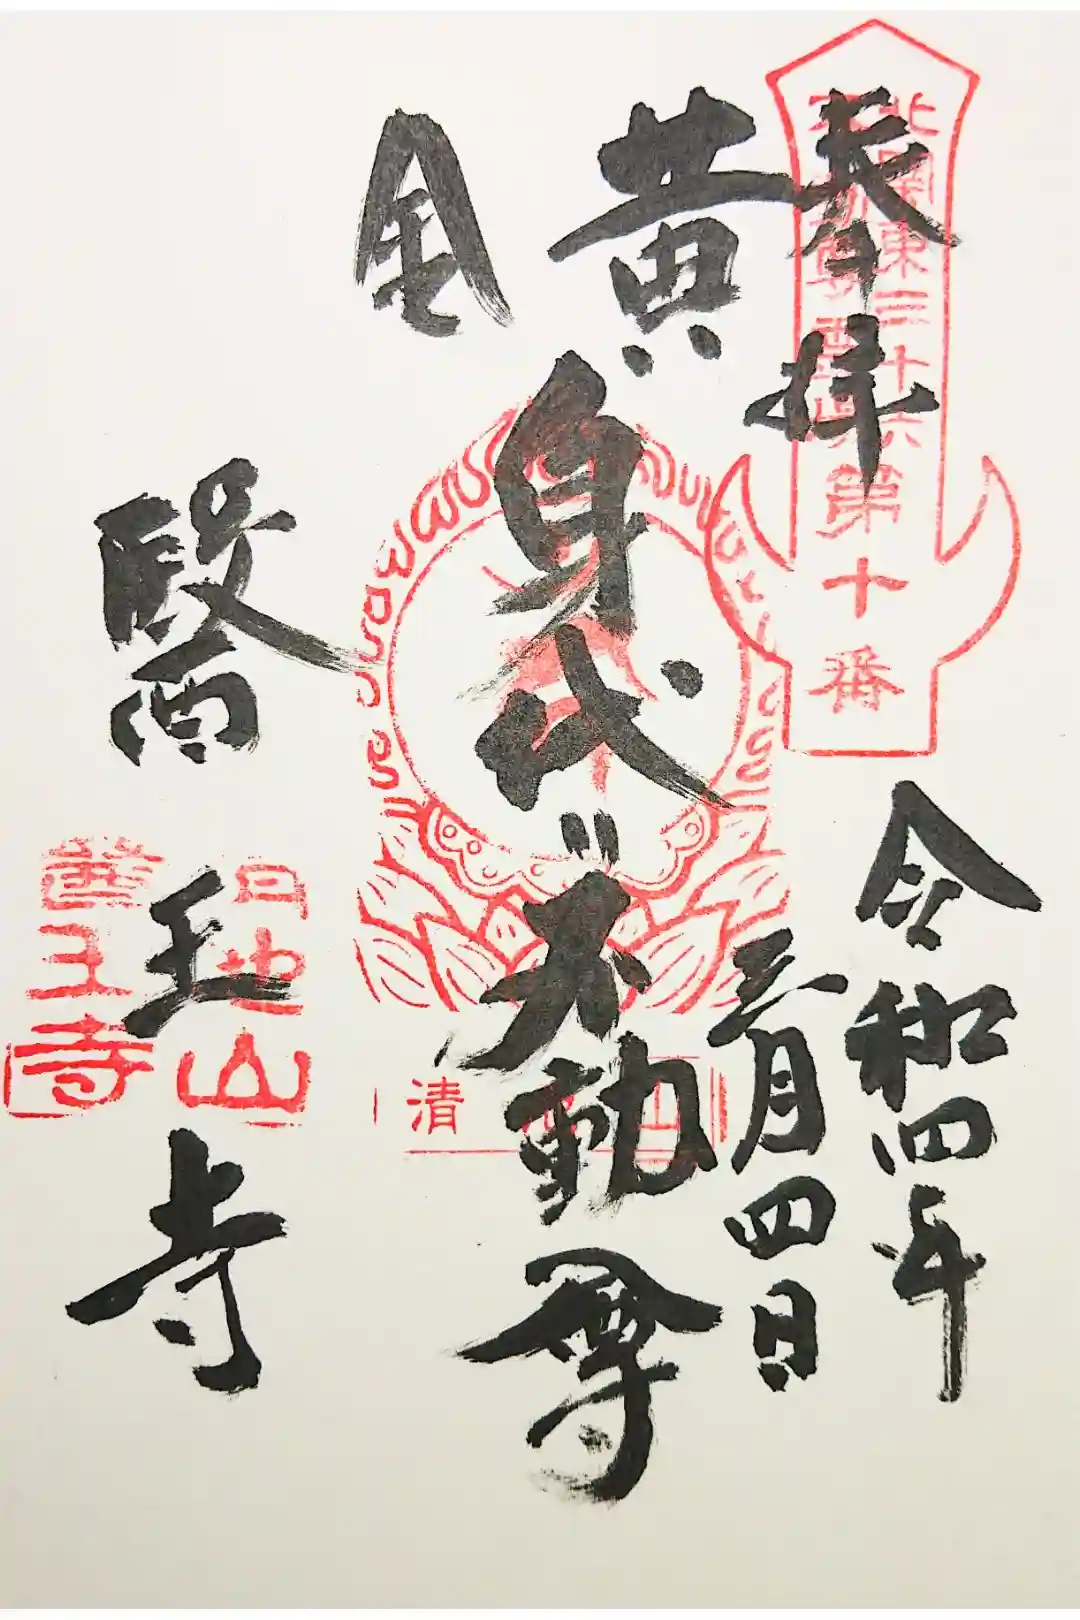 奉拝
北關東三十六
不動尊霊場
第十番
令和四年
三月四日
黄金
身代り不動尊
清
山
醫王寺
山
醫王寺